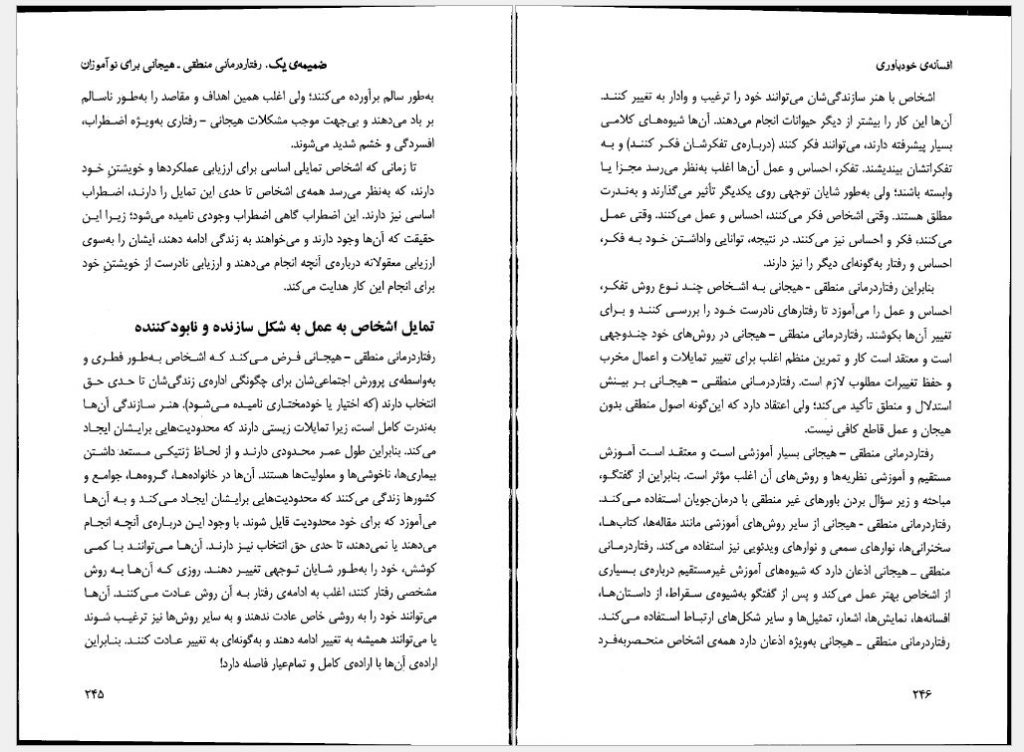 ضمیمه‌ی یک. رفتاردرمانی منطقی ـ هیجانی برای نوآموزان
به‌طور سالم برآورده می‌کنند؛ ولی اغلب همین اهداف و مقاصد را به‌طـور ناسـالم
بر باد می‌دهند و بی‌جهت موجب مشکلات هیجانی – رفتاری به‌ویژه اضـطراب،
افسردگی و خشم شدید می‌شوند.
تا زمانی که اشخاص تمایلی اساسی برای ارزیابی عملکردها و خویشتنِ خـود
دارند، که به‌نظر می‌رسد همه‌ی اشخاص تا حدی این تمایل را دارنـد، اضـطراب
اساسی نیز دارند. این اضطراب گاهی اضطراب وجودی نامیده می‌شود؛ زیـرا ایـن
حقیقت که آن‌ها وجود دارند و می‌خواهند به زندگی ادامه دهند، ایشان را به‌سوی
ارزیابی معقولانه درباره‌ی آنچه انجام می‌دهند و ارزیابی نادرست از خویشتنِ خود
برای انجام این کار هدایت می‌کند.
تمایل اشخاص به عمل به شکل سازنده و نابودکننده
رفتاردرمانی منطقی – هیجـانی فـرض مـی‌کنـد کـه اشـخاص بـه‌طور فطـری و
به‌واسطه‌ی پرورش اجتماعی‌شان برای چگونگی اداره‌ی زندگی‌شان تا حـدی حـق
انتخاب دارند (که اختیار یا خودمختـاری نامیـده مـی‌شـود). هنـر سـازندگی آن‌هـا
به‌ندرت کامل است، زیرا تمایلات زیستی دارند که محدودیت‌هایی برایـشان ایجـاد
می‌کند. بنابراین طول عمـر محـدودی دارنـد و از لحـاظ ژنتیکـی مـستعد داشـتن
بیماری‌ها، ناخوشی‌ها و معلولیت‌ها هستند. آن‌ها در خانواده‌هـا، گروه‌هـا، جوامـع و
کشورها زندگی می‌کنند که محدودیت‌هایی برایـشان ایجـاد مـی‌کنـد و بـه آن‌هـا
می‌آموزد که برای خود محدودیت قایل شوند. با وجود این درباره‌ی آنچـه انجـام
می‌دهند یا نمی‌دهند، تا حدی حق انتخاب نیـز دارنـد. آن‌هـا مـی‌تواننـد بـا کمـی
کوشش، خود را به‌طور شـایان تـوجهی تغییـر دهنـد. روزی کـه آن‌هـا بـه روش
مشخصی رفتار کنند، اغلب به ادامه‌ی رفتار بـه آن روش عـادت مـی‌کننـد. آن‌هـا
می‌توانند خود را به روشی خاص عادت ندهند و به سایر روش‌ها نیز ترغیـب شـوند
یا می‌توانند همیشه به تغییر ادامه دهند و به‌گونه‌ای به تغییر عـادت کننـد. بنـابراین
اراده‌ی آن‌ها با اراده‌ی کامل و تمام‌عیار فاصله دارد!
۲۴۵
افسانه‌ی خودباوری
اشخاص با هنر سازندگی‌شان می‌توانند خود را ترغیب و وادار به تغییر کننـد.
آن‌ها این کار را بیشتر از دیگر حیوانات انجام می‌دهند. آن‌ها شیوه‌هـای کلامـی
بسیار پیشرفته دارند، می‌توانند فکر کنند (درباره‌ی تفکرشان فکـر کننـد) و بـه
تفکراتشان بیندیشند. تفکر، احساس و عمل آن‌ها اغلب به‌نظر می‌رسد مجـزا یـا
وابسته باشند؛ ولی به‌طور شایان توجهی روی یکدیگر تأثیر می‌گذارند و به‌نـدرت
مطلق هستند. وقتی اشخاص فکر می‌کنند، احساس و عمل می‌کنند. وقتی عمـل
می‌کنند، فکر و احساس نیز می‌کنند. در نتیجه، توانایی واداشـتن خـود بـه فکـر،
احساس و رفتار به‌گونه‌ای دیگر را نیز دارند.
بنابراین رفتاردرمانی منطقی - هیجانی بـه اشـخاص چنـد نـوع روش تفکـر،
احساس و عمل را می‌آموزد تا رفتارهای نادرست خود را بررسـی کننـد و بـرای
تغییر آن‌ها بکوشند. رفتاردرمانی منطقی – هیجانی در روش‌های خود چندوجهی
است و معتقد است کار و تمرین منظم اغلب برای تغییر تمایلات و اعمال مخرب
و حفظ تغییرات مطلوب لازم است. رفتاردرمـانی منطقـی – هیجـانی بـر بیـنش
استدلال و منطق تأکید می‌کند؛ ولی اعتقاد دارد که این‌گونه اصول منطقی بدون
هیجان و عمل قاطع کافی نیست.
رفتاردرمانی منطقی – هیجانی بسیار آموزشی اسـت و معتقـد اسـت آمـوزش
مستقیم و آموزشی نظریه‌ها و روش‌های آن اغلب مؤثر است. بنابراین از گفتگـو،
مباحثه و زیر سؤال بردن باورهای غیر منطقی با درمان‌جویان اسـتفاده مـی‌کنـد.
رفتاردرمانی منطقی - هیجانی از سایر روش‌های آموزشی مانند مقاله‌ها، کتاب‌هـا،
سخنرانی‌ها، نوارهای سمعی و نوارهای ویدئویی نیز استفاده می‌کند. رفتاردرمـانی
منطقی ـ هیجانی اذعان دارد که شیوه‌های آموزش غیرمستقیم درباره‌ی بـسیاری
از اشخاص بهتر عمل می‌کند و پس از گفتگو به‌شیوه‌ی سـقراط، از داسـتان‌هـا،
افسانه‌ها، نمایش‌ها، اشعار، تمثیل‌ها و سایر شکل‌های ارتبـاط اسـتفاده مـی‌کنـد.
رفتاردرمانی منطقی ـ هیجانی به‌ویژه اذعان دارد همه‌ی اشخاص منحـصربه‌فـرد
۲۴۶